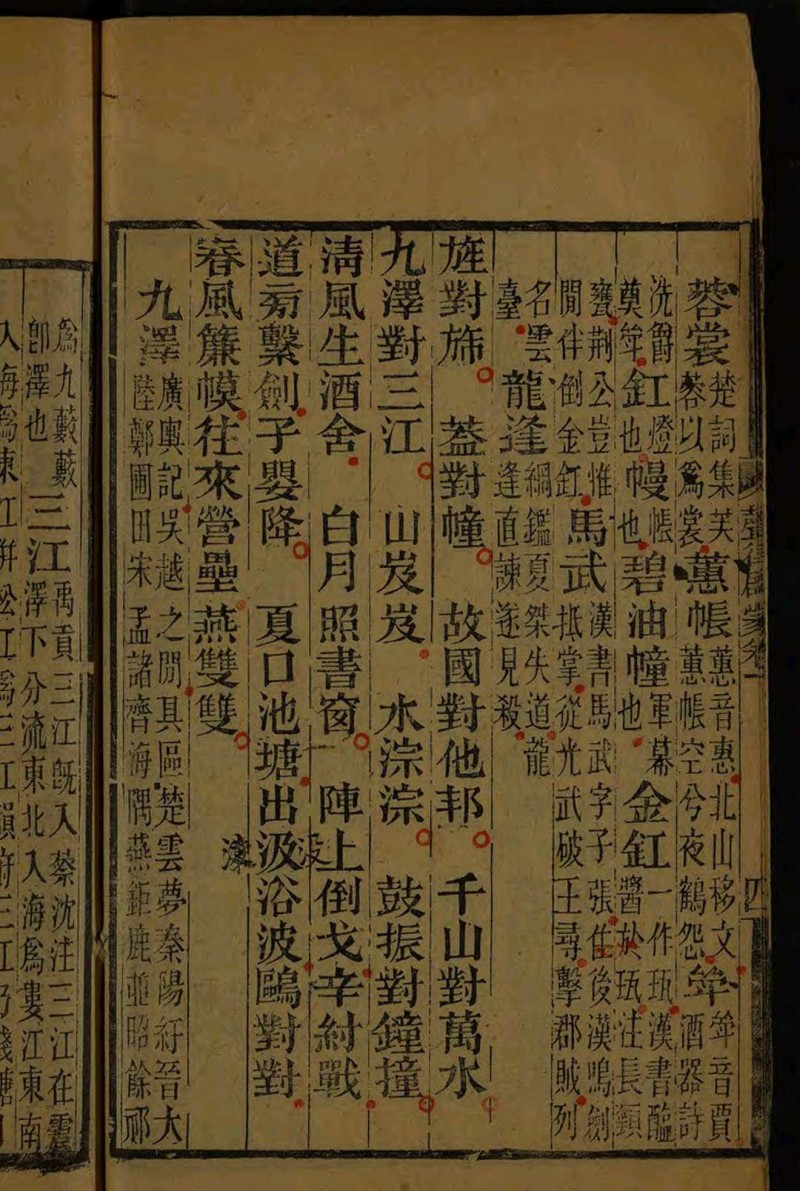 蓉裳楚詞集芙蓉以爲裳蕙帳蕙音惠北山移文蕙帳空兮夜鶴怨斝斝音賈酒器詩
洗爵奠斝釭燈也幔帳也碧油幢軍幕也金釭一作瓨漢書醯醬於瓨注長頸
甕荆公豈惟閒伴倒金釭馬武漢書馬武字子張佳後漢鳴劍抵掌從光武破王尋擊郡賊列
名雲臺龍逢綱鑑夏桀失道龍逢直諫遂見殺
旌對旆蓋對幢故國對他邦千山對萬水
九澤對三江山岌岌水淙淙鼓振對鐘撞
清風生酒舍白月照書窗陣上倒戈辛紂戰
道旁繫劍子嬰降夏口池塘出汲浴波鷗對對
春風簾幙往來營壘燕雙雙
九澤廣輿記吳越之間具區楚雲夢秦陽紆晉大陸鄭圃田宋孟諸齊海隅燕鉅鹿並昭餘祁
四
爲九藪藪卽澤也三江禹貢三江旣入蔡沈注三江在震澤下分流東北入海爲婁江東南
入海爲東江併松江爲三江韻府三江乃錢塘